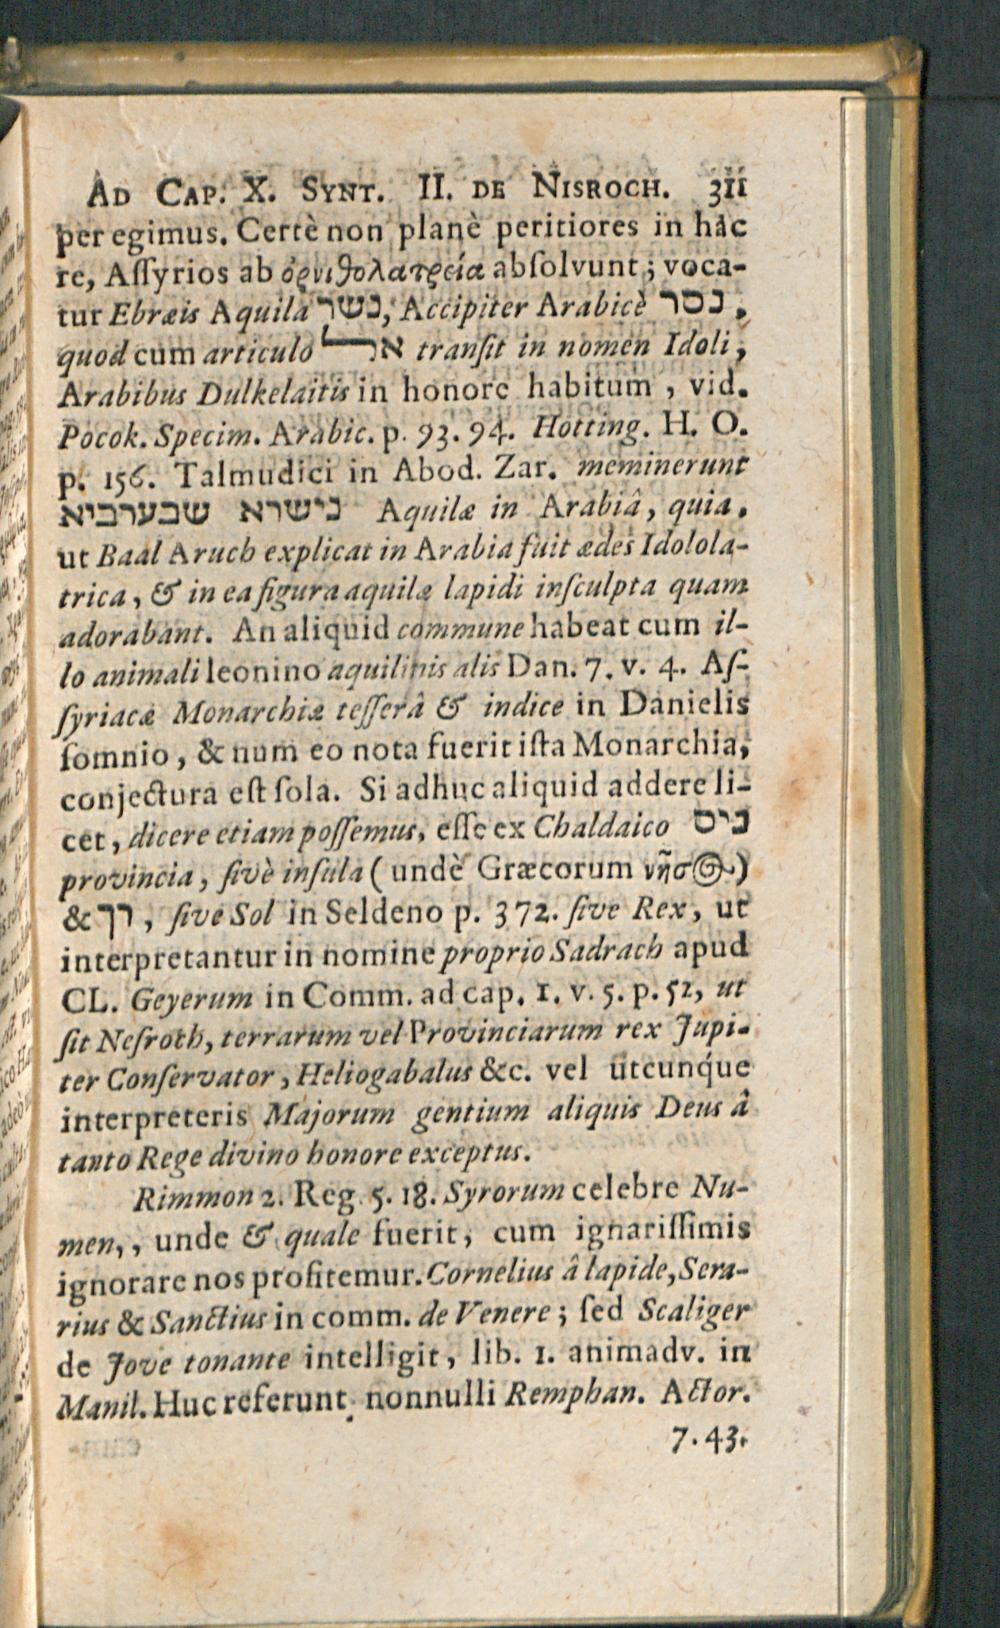 AD CAP. X. SYNT. II. DE NISROCH. 311
peregimus. Certè non planè peritiores in hâc
re, Aſſyrios ab ὀρνιθολατρεία abſolvunt; voca-
tur Ebræis Aquila נשר, Accipiter Arabicè נסר,
quod cum articulo אל tranſit in nomen Idoli,
Arabibus Dulkelaitis in honore habitum, vid.
Pocok. Specim. Arabic. p. 93. 94. Hotting. H. O.
p. 156. Talmudici in Abod. Zar. meminerunt
נישרא שבערביא Aquilæ in Arabiâ, quia,
ut Baal Aruch explicat in Arabia fuit ædes Idolola-
trica, & in ea figura aquilæ lapidi inſculpta quam
adorabant. An aliquid commune habeat cum il-
lo animali leonino aquilinis alis Dan. 7. v. 4. Aſ-
ſyriacæ Monarchiæ teſſerâ & indice in Danielis
ſomnio, & num eo nota fuerit iſta Monarchia,
conjectura eſt ſola. Si adhuc aliquid addere li-
cet, dicere etiam poſſemus, eſſe ex Chaldaico ניס
provincia, ſivè inſula (undè Græcorum νῆσος)
& רך, ſive Sol in Seldeno p. 372. ſive Rex, ut
interpretantur in nomine proprio Sadrach apud
CL. Geyerum in Comm. ad cap. 1. v. 5. p. 52, ut
ſit Neſroth, terrarum vel Provinciarum rex Jupi-
ter Conſervator, Heliogabalus &c. vel utcunque
interpreteris Majorum gentium aliquis Deus â
tanto Rege divino honore exceptus.
Rimmon 2. Reg. 5. 18. Syrorum celebre Nu-
men,, unde & quale fuerit, cum ignariſſimis
ignorare nos profitemur. Cornelius â lapide, Sera-
rius & Sanctius in comm. de Venere; ſed Scaliger
de Jove tonante intelligit, lib. 1. animadv. in
Manil. Huc referunt nonnulli Remphan. Actor.
7. 43.